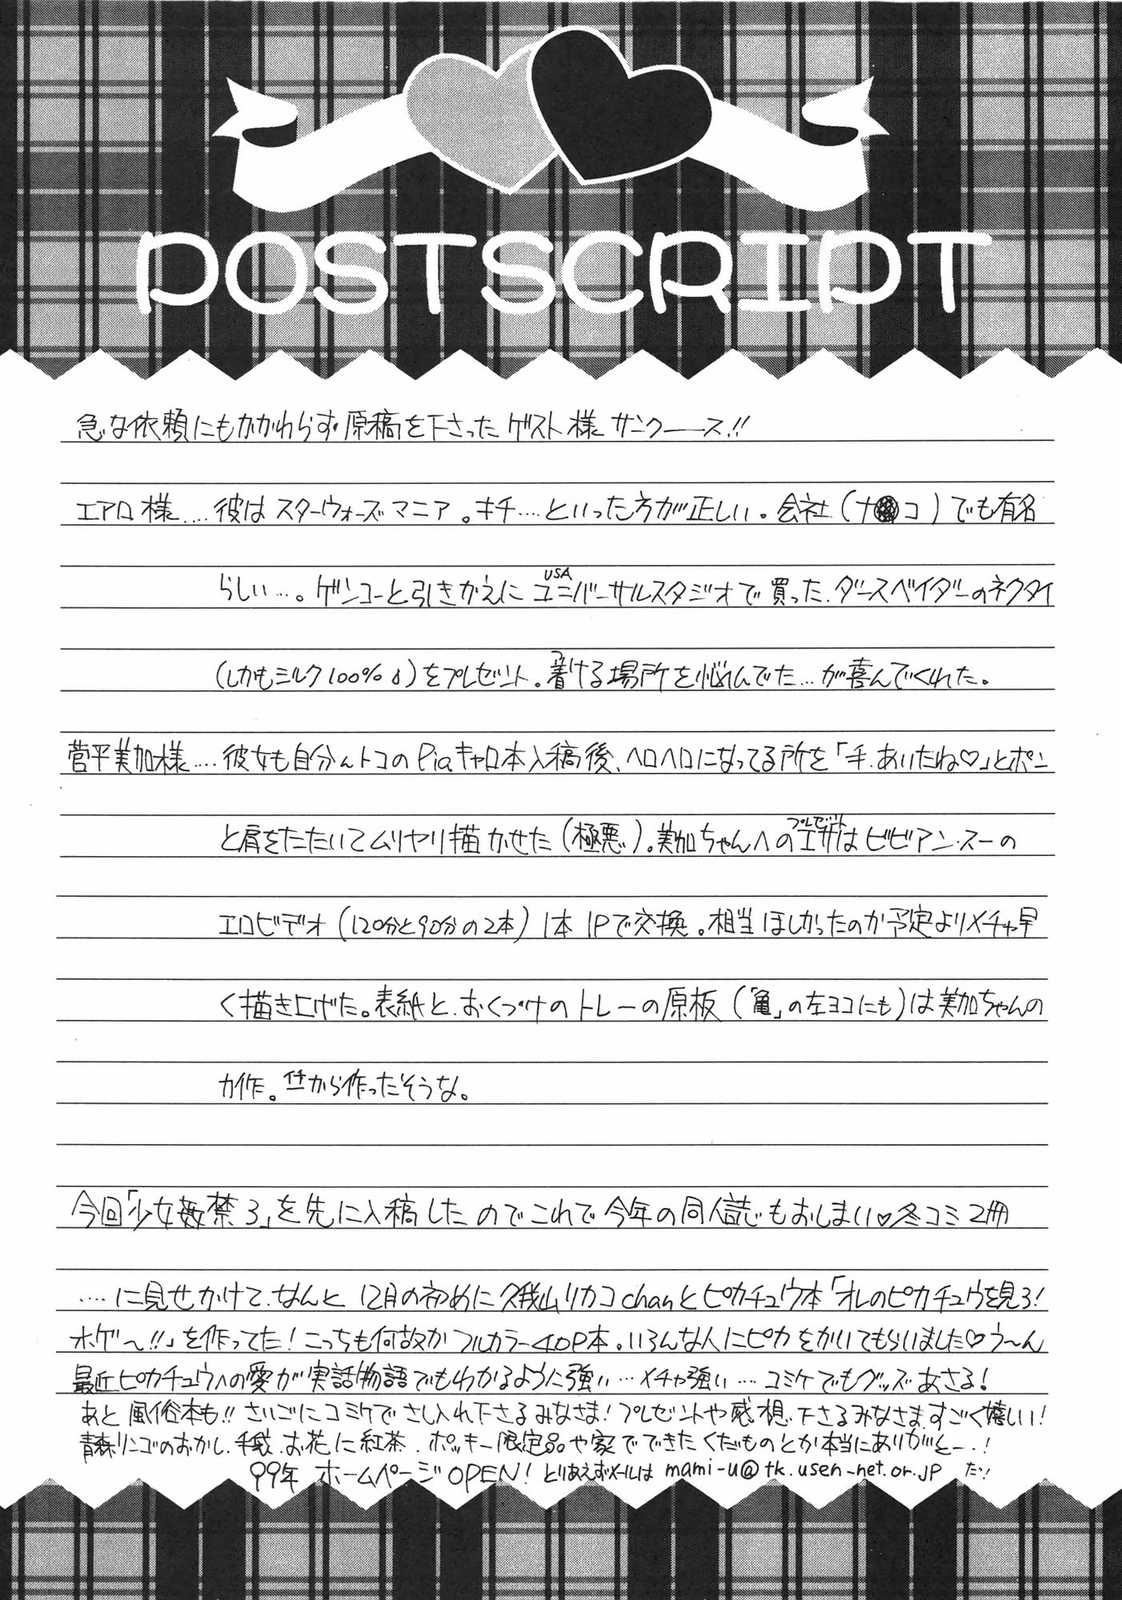 POSTSCRIPT
急な依頼にもかかわらず原稿を下さったゲスト様サンクース!!
エアロ様‥‥彼はスターウォーズマニア。キチ‥‥といった方が正しい。会社(ナ●コ)でも有名
らしい…。ゲンコーと引きかえにUSAユニバーサルスタジオで買った.ダースベイダーのネクタイ
(しかもシルク100%♪)をプレゼント。着ける場所を悩んでた…が喜んでくれた。
菅平美加様‥‥彼女も自分んトコのPiaキャロ本入稿後、ヘロヘロになってる所を「手.あいたね♡」とポン
と肩をたたいてムリヤリ描かせた(極悪)。美加ちゃんへのエサ(プレゼント)はビビアン・スーの
エロビデオ(120分と90分の2本)1本1Pで交換。相当ほしかったのか予定よりメチャ早
く描き上げた。表紙と.おくづけのトレーの原板(「亀」の左ヨコにも)は美加ちゃんの
力作。イチから作ったそうな。
今回「少女姦禁3」を先に入稿したのでこれで今年の同人誌もおしまい♡冬コミ2冊
‥‥に見せかけて.なんと12月の初めに久我山リカコchanとピカチュウ本「オレのピカチュウを見ろ!
ホゲ〜!!」を作ってた!こっちも何故かフルカラー40P本。いろんな人にピカをかいてもらいました♡う〜ん
最近ピカチュウへの愛が実話物語でもわかるように強い…メチャ強い…コミケでもグッズあさる!
あと風俗本も!!さいごにコミケでさし入れ下さるみなさま!プレゼントや感想.下さるみなさますごく嬉しい!
青森リンゴのおかし.手紙.お花に紅茶.ポッキー限定品や家でできたくだものとか本当にありがとー.!
99年 ホームページOPEN!とりあえずメールは mami-u@tk.usen-net.or.jp だッ!